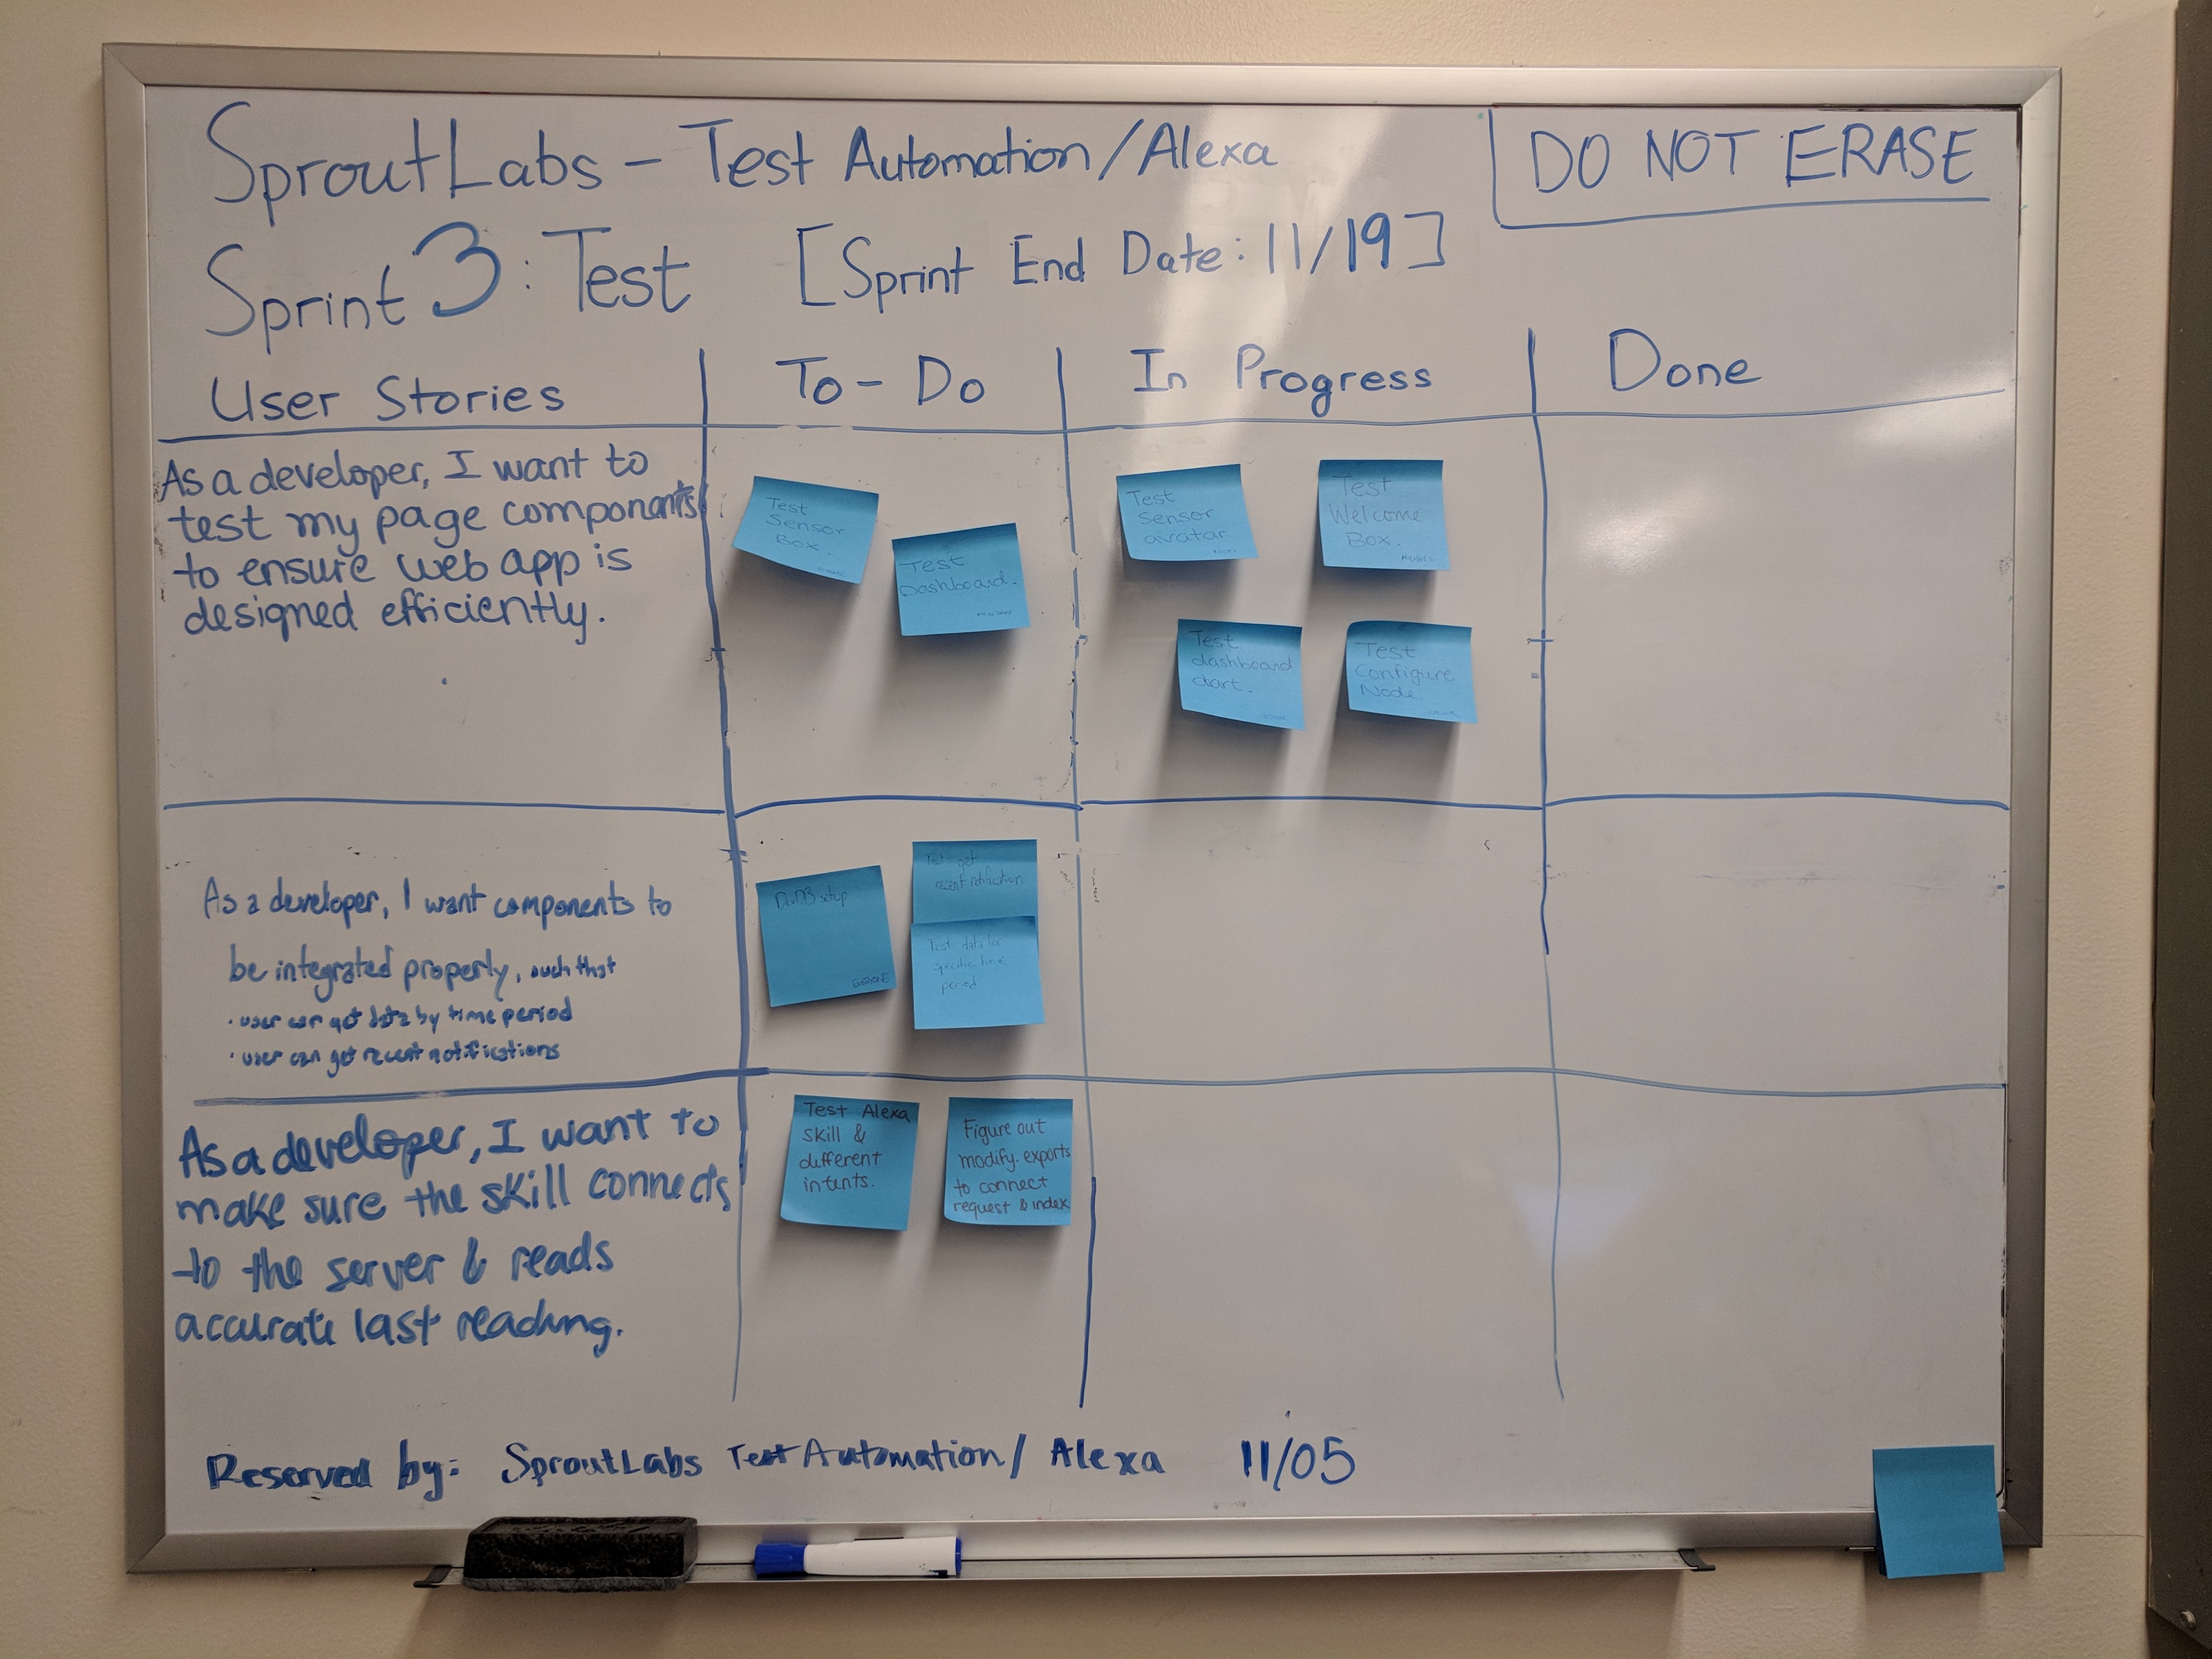 SproutLabs - Test Automation/Alexa
DO NOT ERASE
Sprint 3: Test [Sprint End Date: 11/19]
User Stories
To-Do
In Progress
Done
As a developer, I want to
test my page components
to ensure web app is
designed efficiently.
Test
Sensor
Box.
Test
Dashboard.
Test
Sensor
avatar
Test
Welcome
Box.
Test
dashboard
chart.
Test
Configure
Node
As a developer, I want components to
be integrated properly, such that
· user can get data by time period
· user can get recent notifications
DevDB setup
EVERYONE
Test get
recent notification
Test data for
specific time
period
As a developer, I want to
make sure the skill connects
to the server & reads
accurate last reading.
Test Alexa
skill &
different
intents.
Figure out
modify.exports
to connect
request & index
Reserved by: SproutLabs Test Automation/ Alexa 11/05